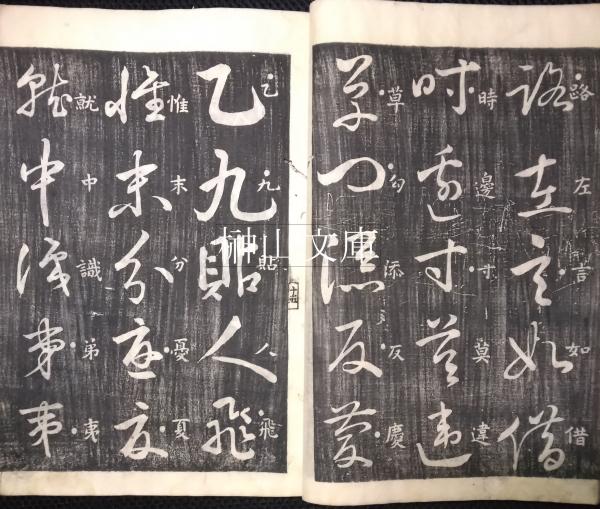 路左言如借
時邊寸莫違
草勾添反慶
乙九貼人飛
惟末分憂夏
就中識弟夷
榊山文庫